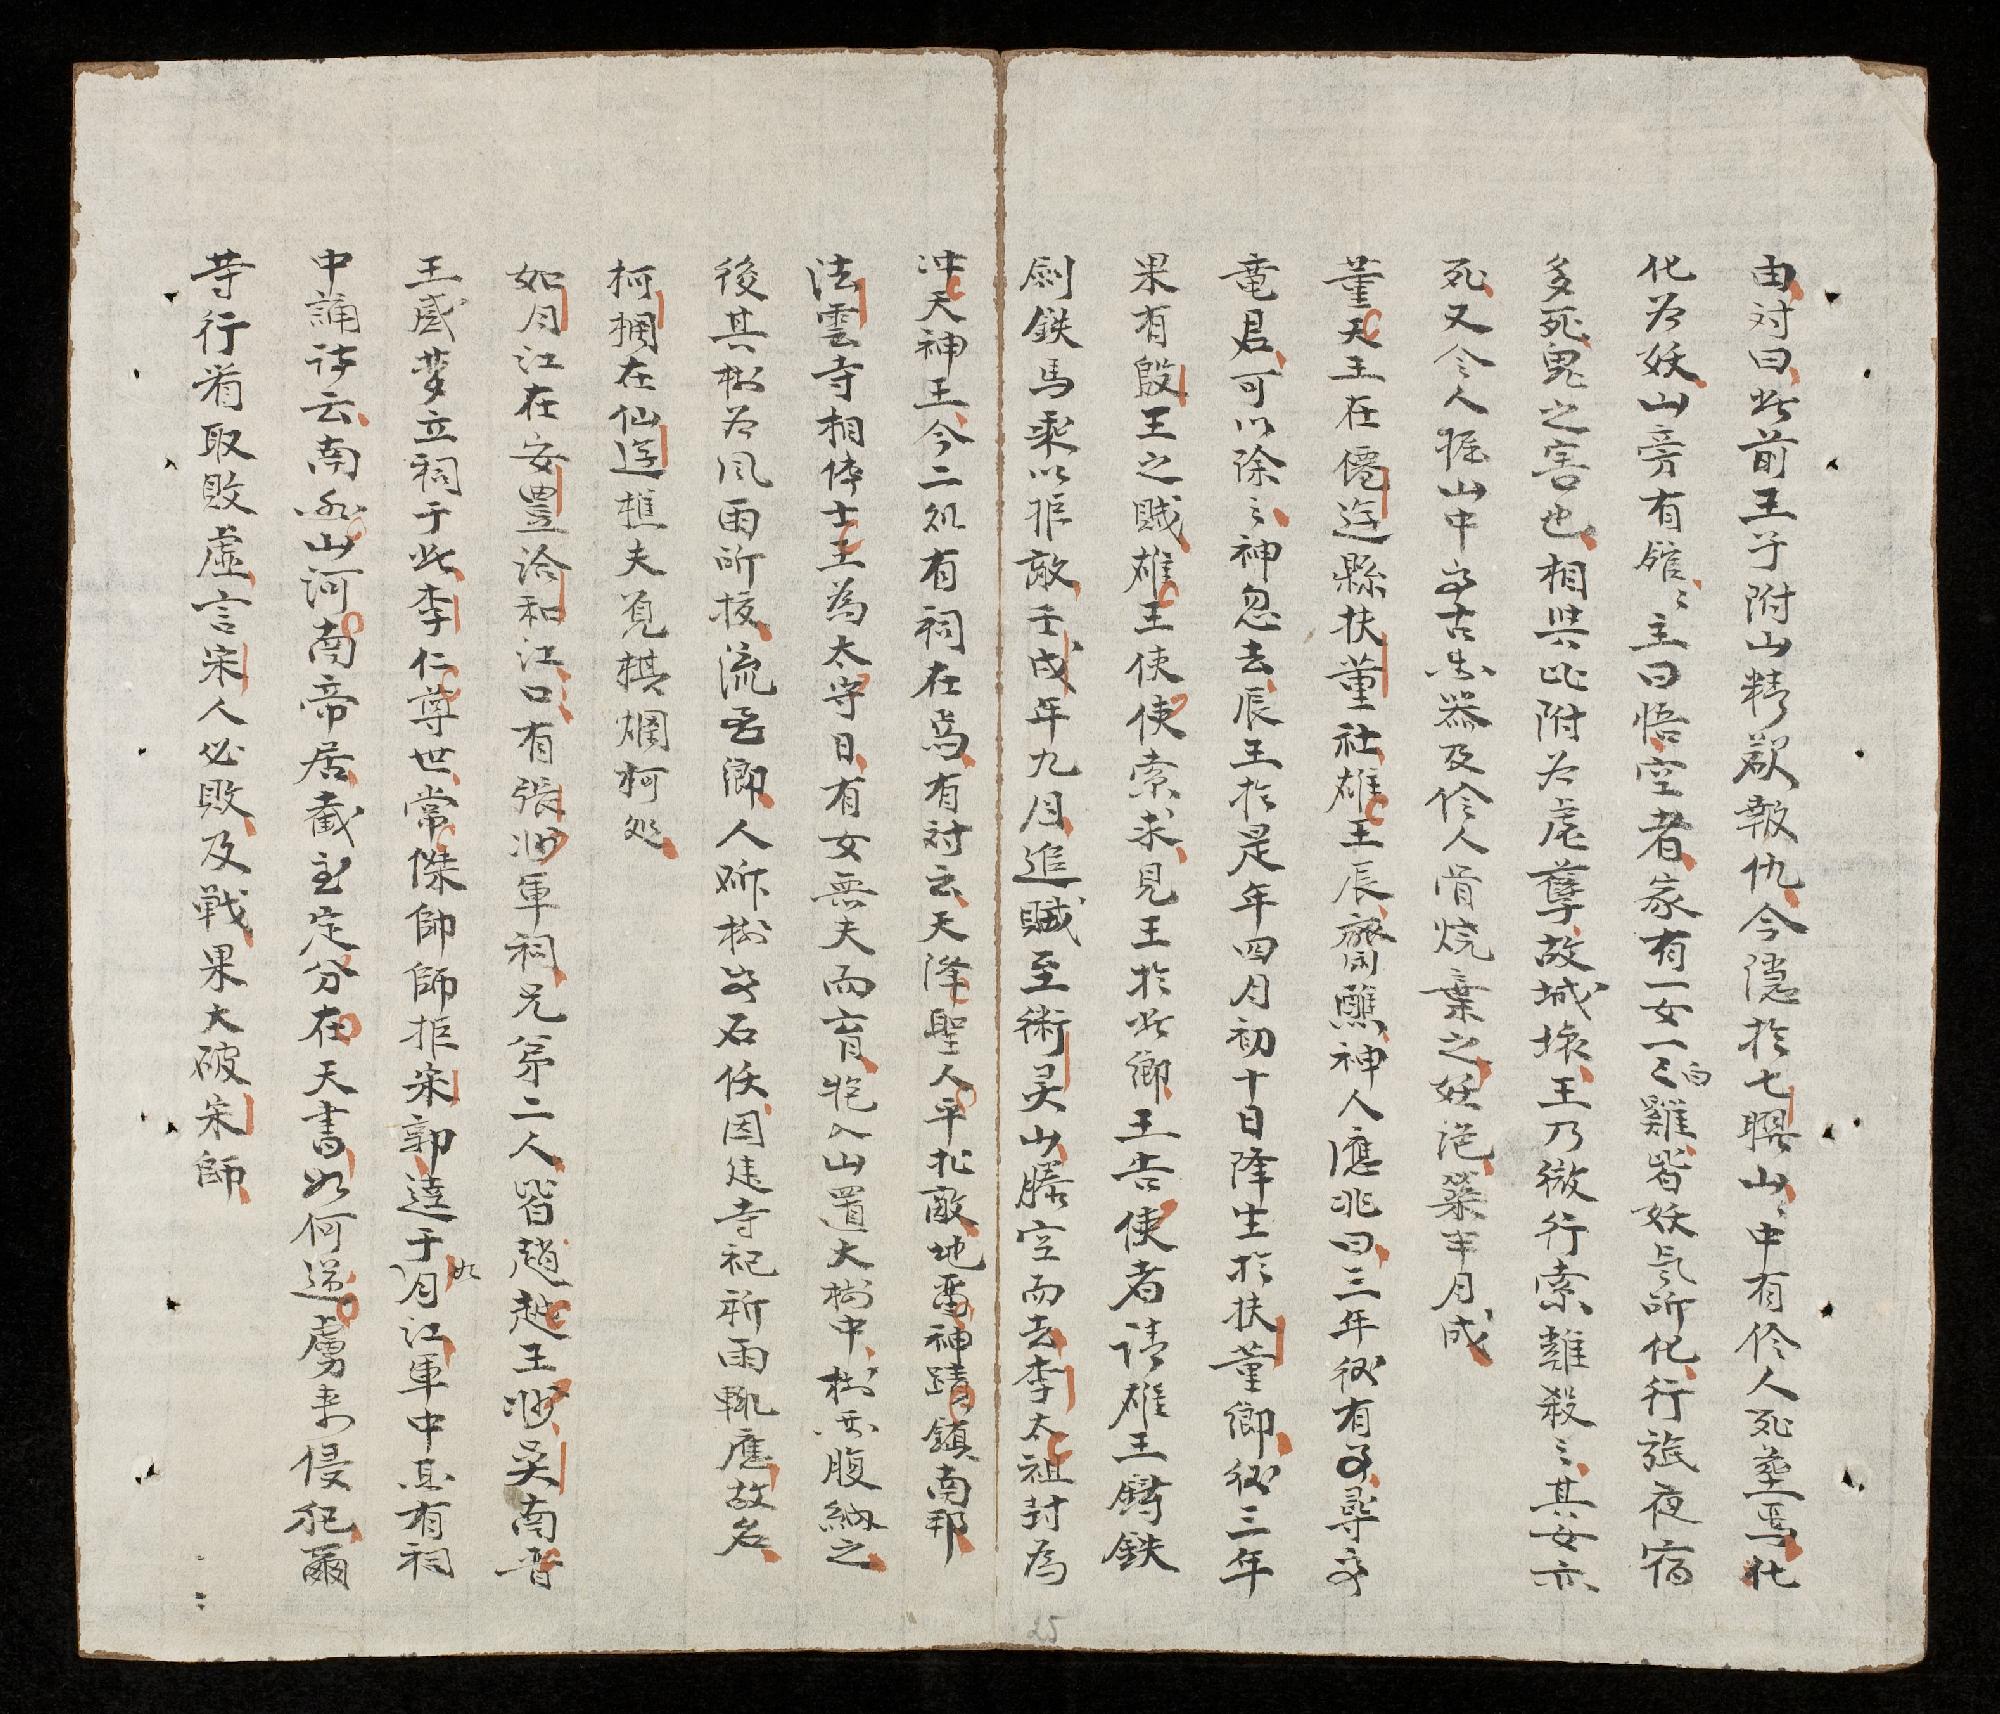 由対曰此前王子附山精欲報仇今隱於七曜山〻中有伶人死塟焉化
化为妖山旁有舘〻主曰悟空者家有一女一白雞皆妖氣所化行旅夜宿
多死鬼之害也相與比附为虐孽故城壊王乃微行索雞殺之其女亦
死又令人掘山中得古楽器及伶人骨燒棄之妖絶築半月成
董天王在僊遊縣扶董社雄王辰齋醮神人應兆曰三年後有尋求
竜君可以除之神忽去辰王於是年四月初十日降生於扶董鄉後三年
果有殷王之賊雄王使使索求見王於此鄉王告使者请雄王鑄鉄
劍鉄馬乘以拒敵壬戌年九月追賊至術灵山騰空而去李太祖封為
冲天神王今二处有祠在焉有対云天降聖人平北敵地畱神蹟鎮南邦
法雲寺相傳士王為太守日有女無夫而育抱入山置大樹中樹開腹納之
後其树为风雨所拔流至鄉人斫树得石佛因建寺祀祈雨輒應故名
柯㭽在仙遊樵夫覓棋爛柯処
如月江在安豊洽和江口有張將軍祠兄弟二人皆趙越王將吳南晋
王感夢立祠于此李仁尊世常傑師師拒宋郭逵于如月江軍中息有祠
中誦诗云南國山河南帝居截然定分在天書如何逆虜来侵犯爾
等行看取敗虛言宋人必敗及戰果大破宋師
25